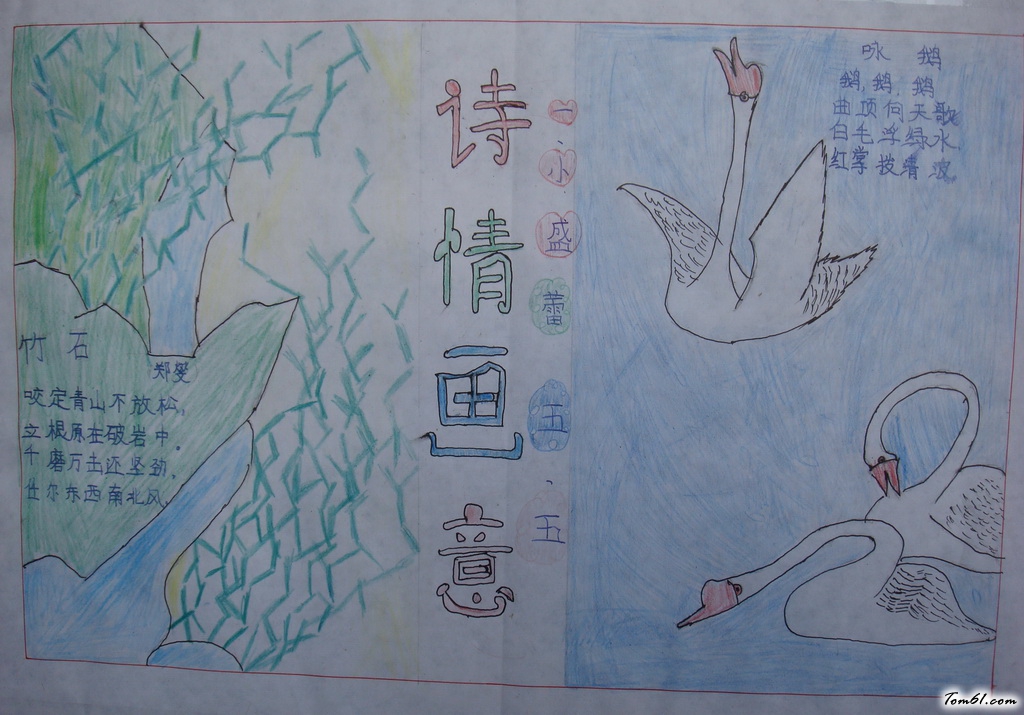 诗情画意
一、小盛蕾五、五
竹石
郑燮
咬定青山不放松,
立根原在破岩中。
千磨万击还坚劲,
任尔东西南北风。
咏鹅
鹅,鹅,鹅
曲项向天歌
白毛浮绿水
红掌拨清波
Tom61.com